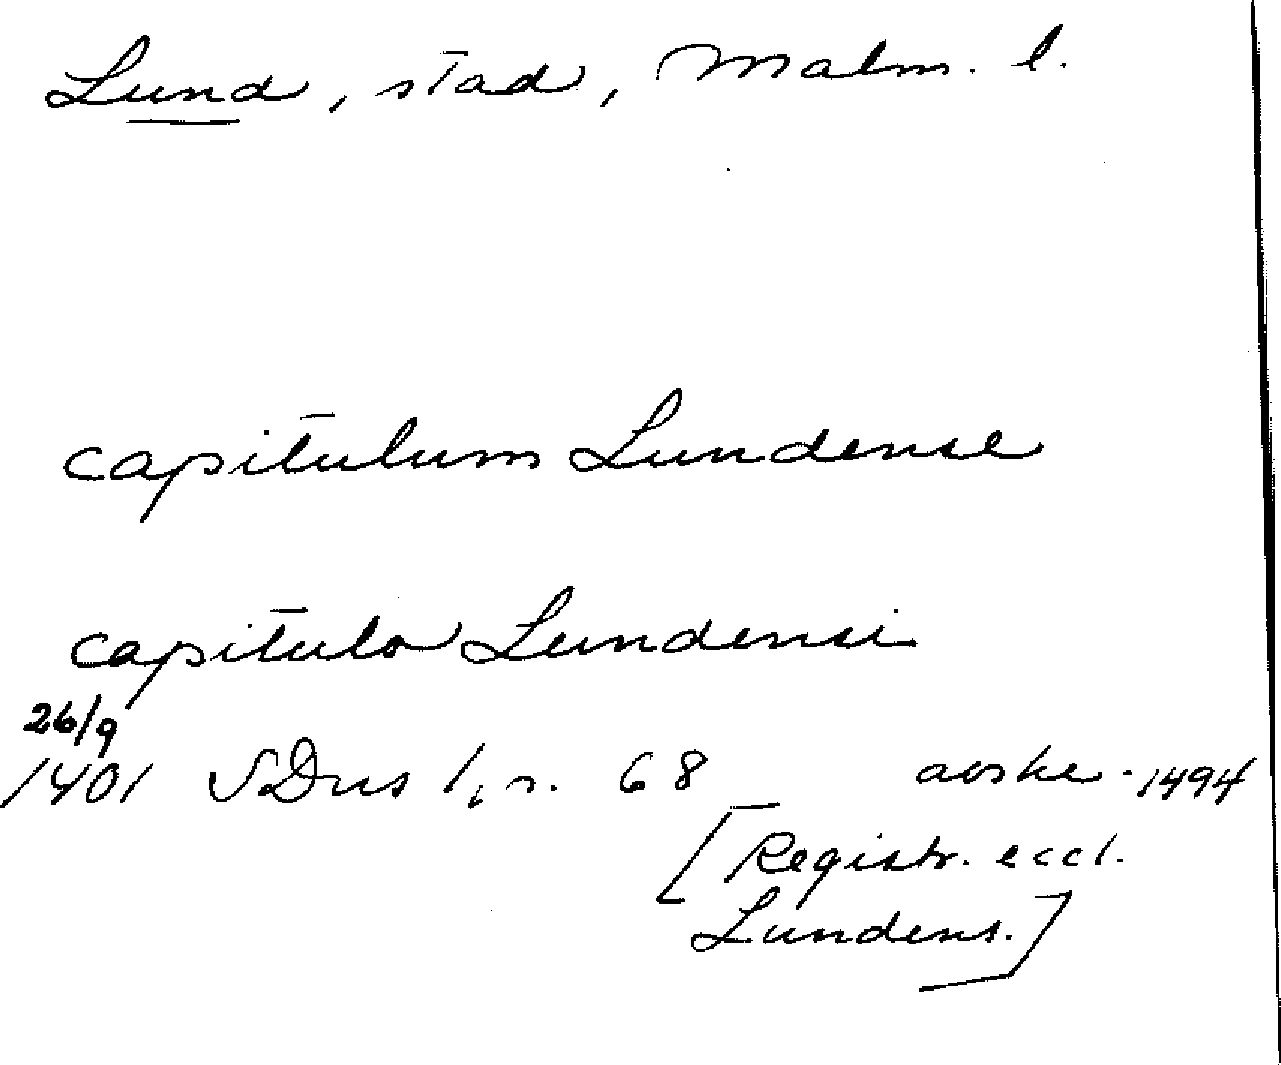 Lund, stad, Malm. l.
capitulum Lundense
capitulo Lundensi
26/9
1401 SDns 1, s. 68 avskr. 1494
[Registr. eccl.
Lundens.]